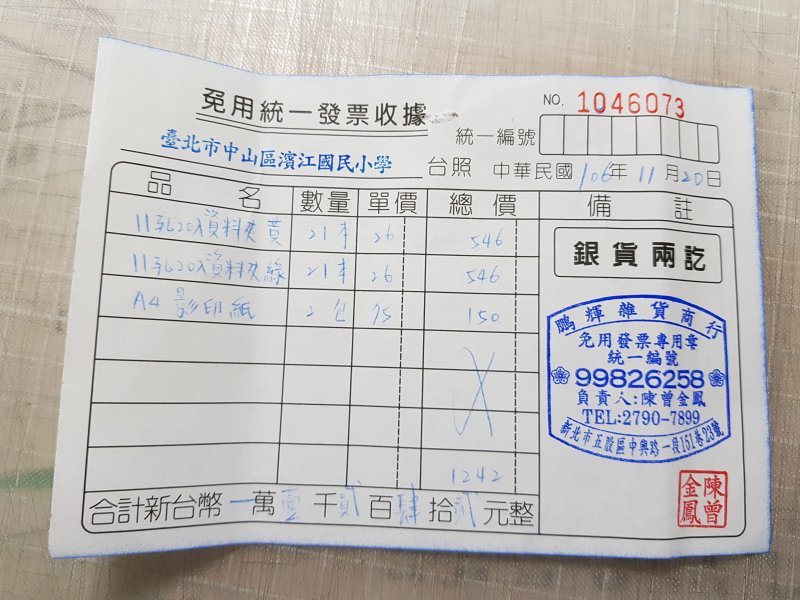 免用統一發票收據
NO. 1046073
統一編號
臺北市中山區濱江國民小學 台照 中華民國106年11月20日
品名 數量 單價 總價 備註
11孔20入資料夾黃 21本 26 546
11孔20入資料夾綠 21本 26 546
A4影印紙 2包 75 150
1242
合計新台幣一萬壹千貳百肆拾貳元整
銀貨兩訖
鵬輝雜貨商行
免用發票專用章
統一編號
99826258
負責人:陳曾金鳳
TEL:2790-7899
新北市五股區中興路一段151巷23號
陳曾金鳳